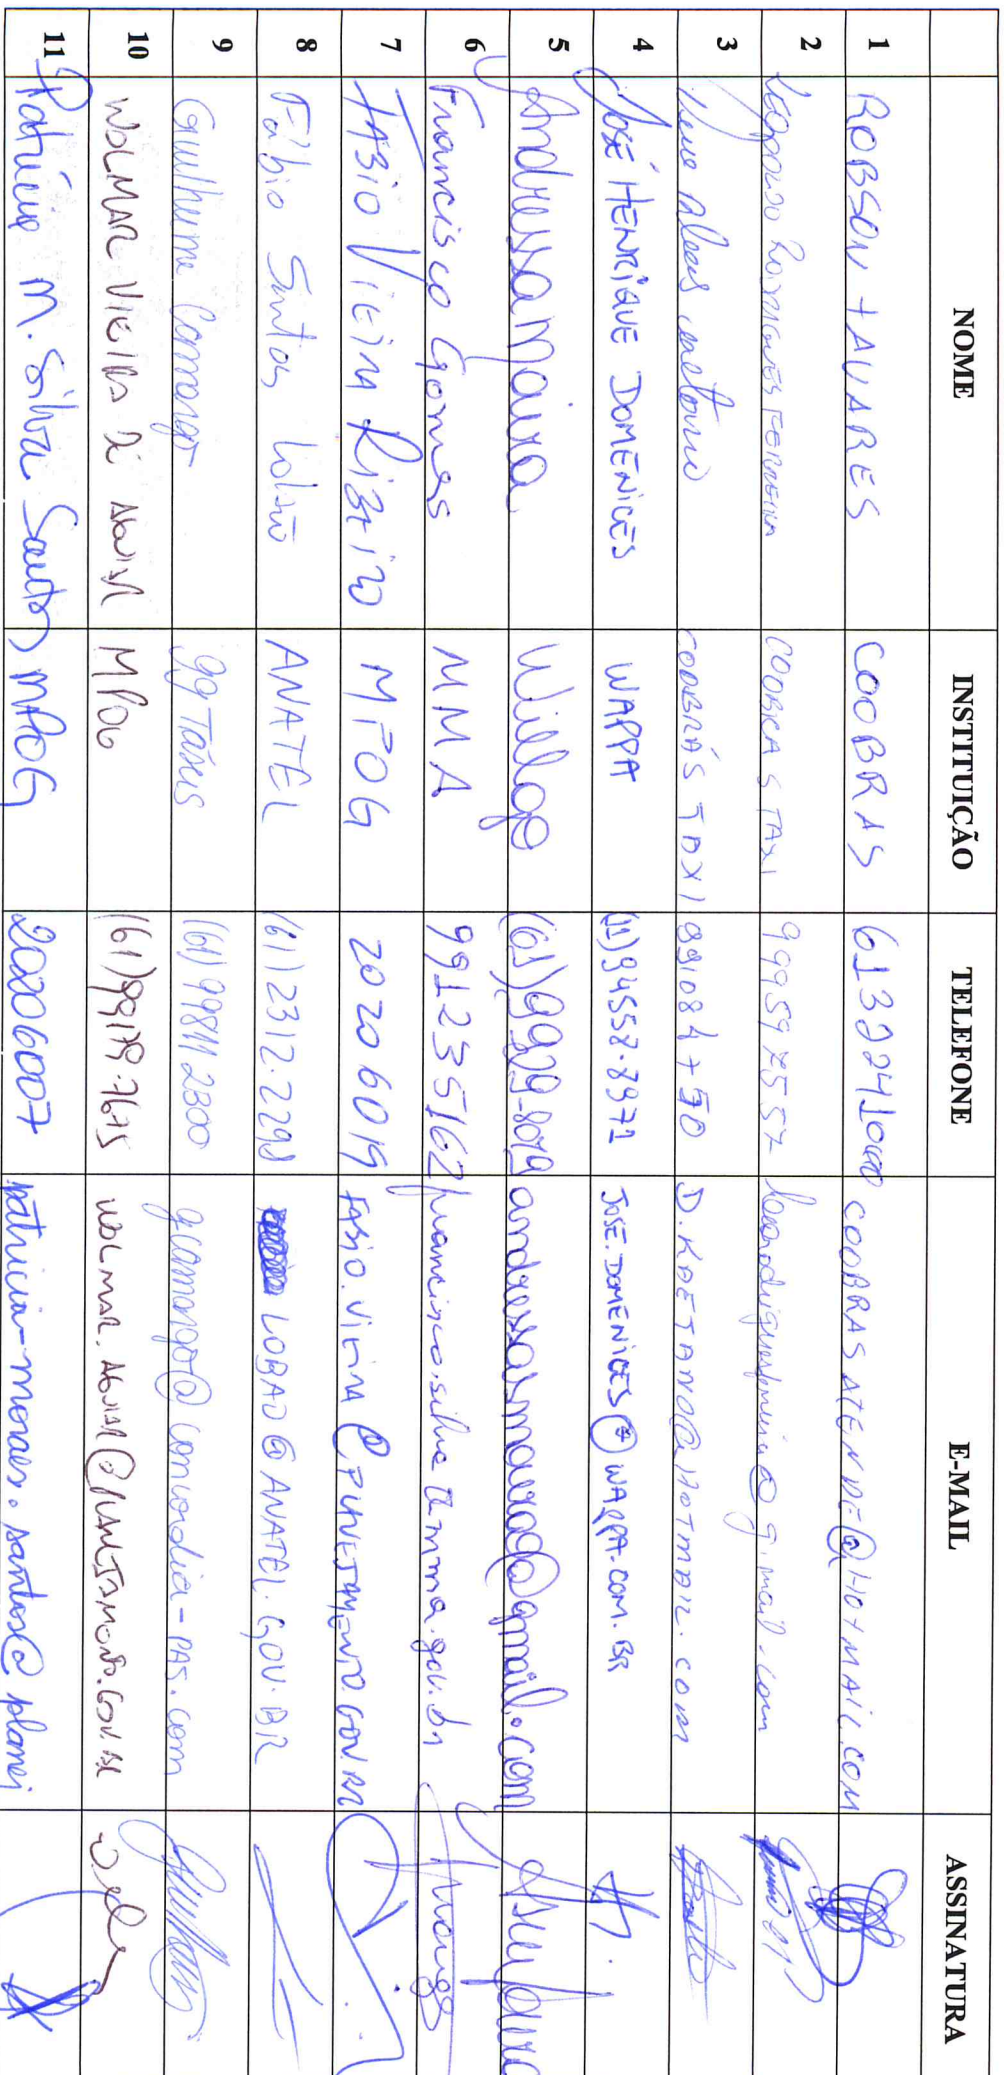 NOME INSTITUIÇÃO TELEFONE E-MAIL ASSINATURA
1 ROBSON TAVARES COOBRAS 6132241000 COOBRASATENDE@HOTMAIL.COM
2 RODRIGUES FERREIRA COOBRAS TAXI 999597557
3 COOBRÁS TAXI D.KAETANO@HOTMAIL.COM
4 JOSÉ HENRIQUE DOMENICES WAPPA (11)94558.8971 JOSE.DOMENICES@WAPPA.COM.BR
5 Andressa Moura (61)9929-8019 andressasmoura@gmail.com
6 Francisco Gomes MMA 991235162 francisco.silva@mma.gov.br
7 FABIO VIEIRA RIBEIRO MPOG 20206019 FABIO.VIEIRA@PLANEJAMENTO.GOV.BR
8 Fábio Santos Lobão ANATEL (61)2312.2291 LOBAO@ANATEL.GOV.BR
9 Guilherme Camargo gg Taxis (61)99811 2300 gcamargo@concordia-pas.com
10 WOLMAR VIEIRA DE AGUIAR MPOG (61)99179-7675 WOLMAR.AGUIAR@PLANEJAMENTO.GOV.BR
11 Patrícia M. Silva Santos MPOG 20206007 patricia-moraes.santos@planej